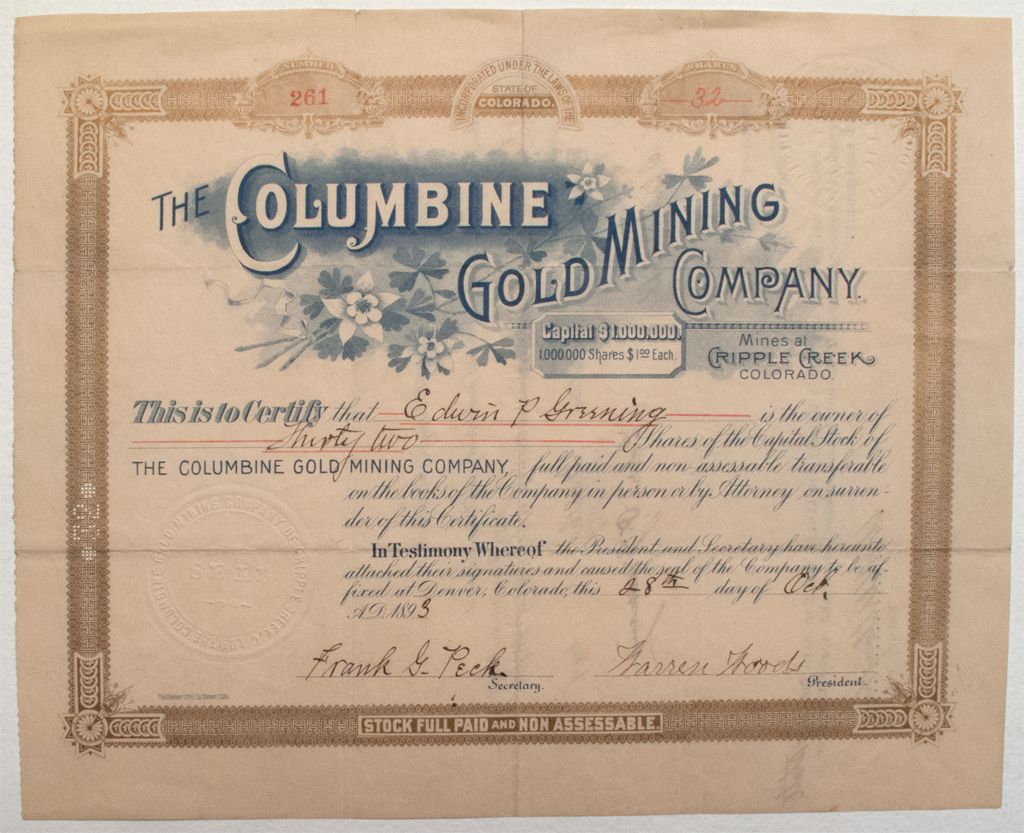 NUMBER
261
INCORPORATED UNDER THE LAWS OF THE
STATE OF
COLORADO.
SHARES
32
THE COLUMBINE
GOLD MINING
COMPANY.
Capital $1.000.000.
1.000.000 Shares $1.00 Each.
Mines at
CRIPPLE CREEK
COLORADO.
This is to Certify that Edwin P Greening is the owner of
Thirty two Shares of the Capital Stock of
THE COLUMBINE GOLD MINING COMPANY, full paid and non-assessable transferable
on the books of the Company in person or by Attorney on surren-
der of this Certificate.
In Testimony Whereof the President and Secretary have hereunto
attached their signatures and caused the seal of the Company to be af-
fixed at Denver, Colorado, this 28th day of Oct.
A.D. 1893
Frank G. Peck
Secretary.
Warren Woods
President.
STOCK FULL PAID AND NON ASSESSABLE.